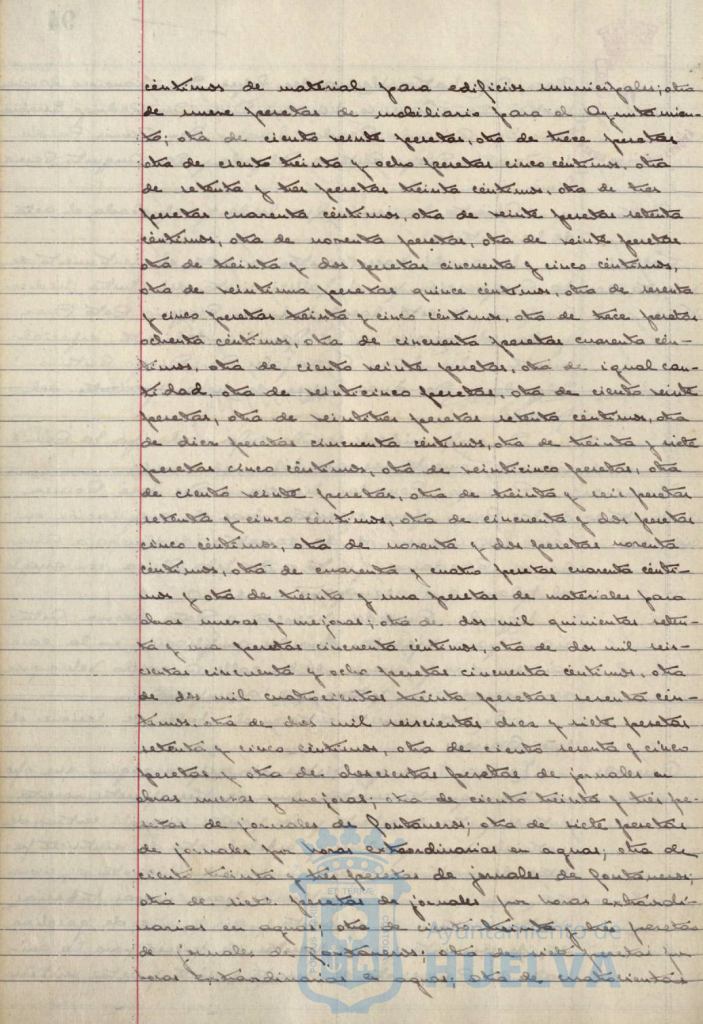 céntimos de material para edificios municipales; otra
de nueve pesetas de mobiliario para el Ayuntamien-
to; otra de ciento veinte pesetas, otra de trece pesetas
otra de ciento treinta y ocho pesetas cinco céntimos, otra
de setenta y tres pesetas treinta céntimos, otra de tres
pesetas cuarenta céntimos, otra de veinte pesetas setenta
céntimos, otra de noventa pesetas, otra de veinte pesetas
otra de treinta y dos pesetas cincuenta y cinco céntimos,
otra de veintiuna pesetas quince céntimos, otra de sesenta
y cinco pesetas treinta y cinco céntimos, otra de trece pesetas
ochenta céntimos, otra de cincuenta pesetas cuarenta cén-
timos, otra de ciento veinte pesetas, otra de igual can-
tidad, otra de veinticinco pesetas, otra de ciento veinte
pesetas, otra de veintitres pesetas setenta céntimos, otra
de diez pesetas cincuenta céntimos, otra de treinta y siete
pesetas cinco céntimos, otra de veinticinco pesetas, otra
de ciento veinte pesetas, otra de treinta y seis pesetas
setenta y cinco céntimos, otra de cincuenta y dos pesetas
cinco céntimos, otra de noventa y dos pesetas noventa
céntimos, otra de cuarenta y cuatro pesetas cuarenta cénti-
mos y otra de treinta y una pesetas de materiales para
obras nuevas y mejoras; otra de dos mil quinientas seten-
ta y una pesetas cincuenta céntimos, otra de dos mil seis-
cientas cincuenta y ocho pesetas cincuenta céntimos, otra
de dos mil cuatrocientas treinta pesetas sesenta cén-
timos, otra de dos mil seiscientas diez y siete pesetas
setenta y cinco céntimos, otra de ciento sesenta y cinco
pesetas y otra de doscientas pesetas de jornales en
obras nuevas y mejoras; otra de ciento treinta y tres pe-
setas de jornales de fontaneros; otra de siete pesetas
de jornales por horas extraordinarias en aguas; otra de
ciento treinta y tres pesetas de jornales de fontaneros;
otra de siete pesetas de jornales por horas extraordi-
narias en aguas; otra de ciento treinta y tres pesetas
de jornales de fontaneros; otra de siete pesetas por
horas extraordinarias en aguas; otra de cuatrocientas
Ayuntamiento de
HUELVA